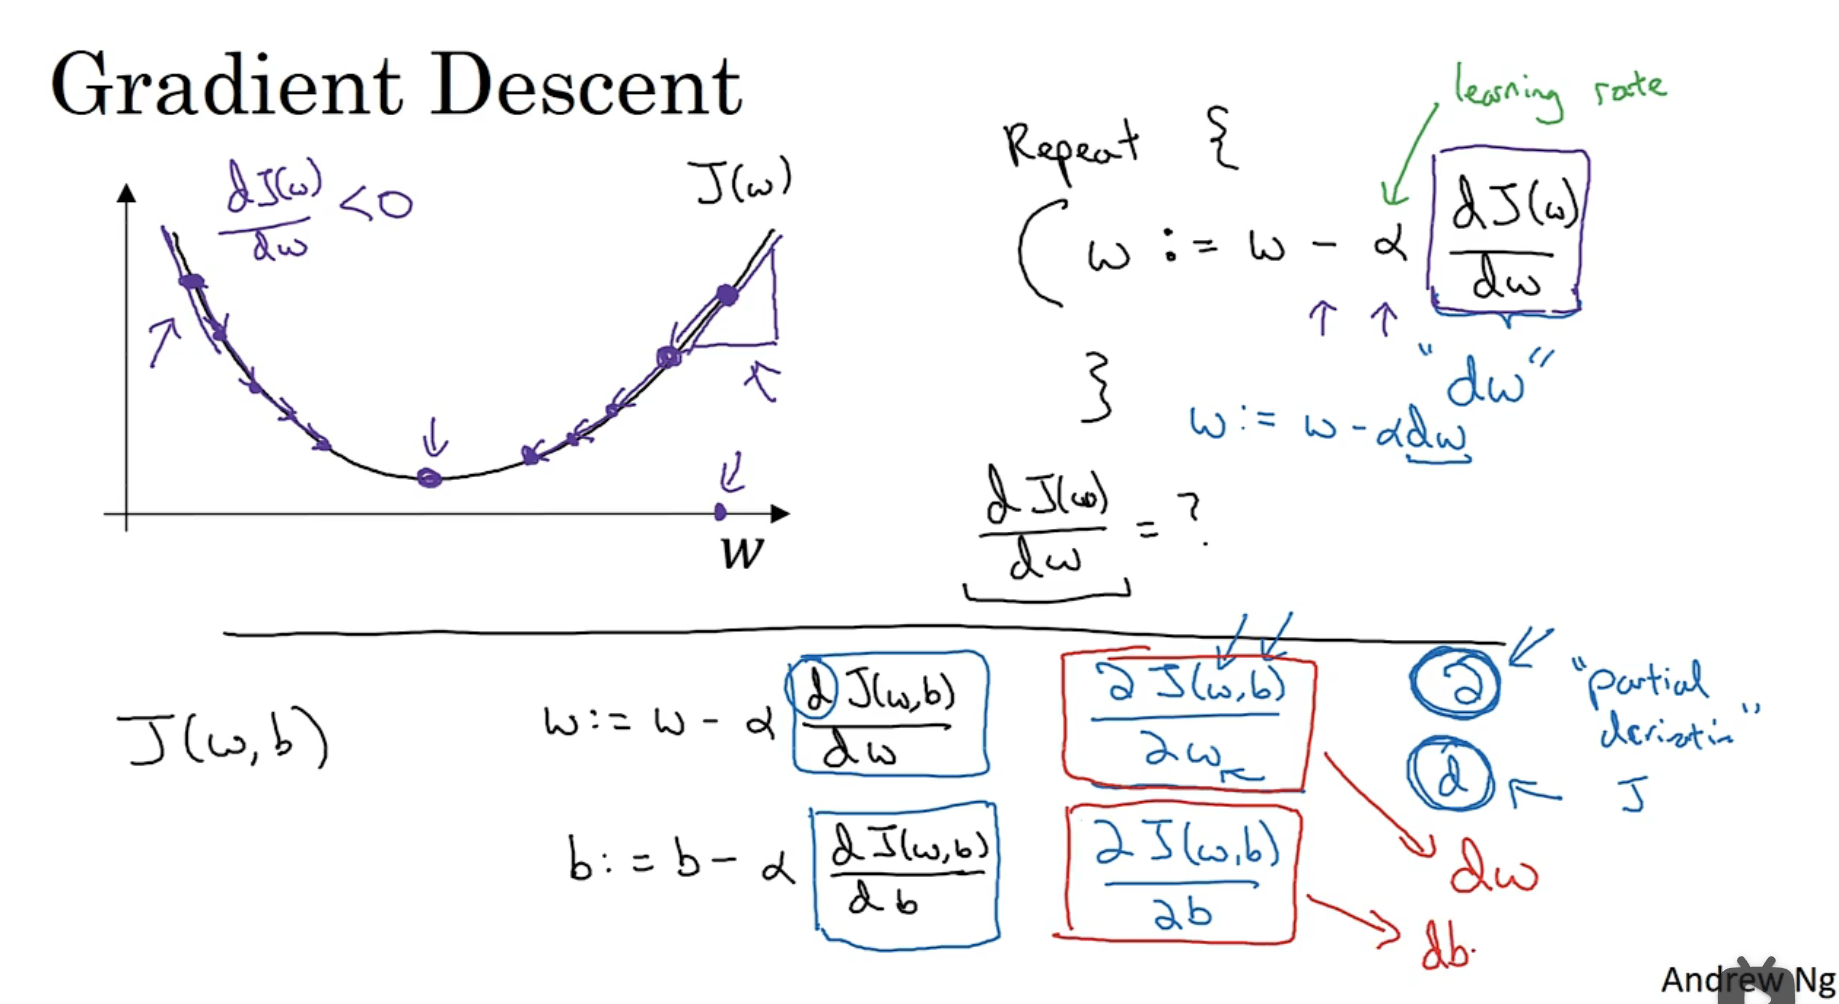 Gradient Descent
learning rate
Repeat {
w := w - α dJ(w)/dw
"dw"
}
w := w - αdw
dJ(w)/dw < 0
J(w)
w
dJ(w)/dw = ?
J(w,b)
w := w - α dJ(w,b)/dw
∂J(w,b)/∂w
∂
"partial
derivative"
d
J
dw
b := b - α dJ(w,b)/db
∂J(w,b)/∂b
db
Andrew Ng